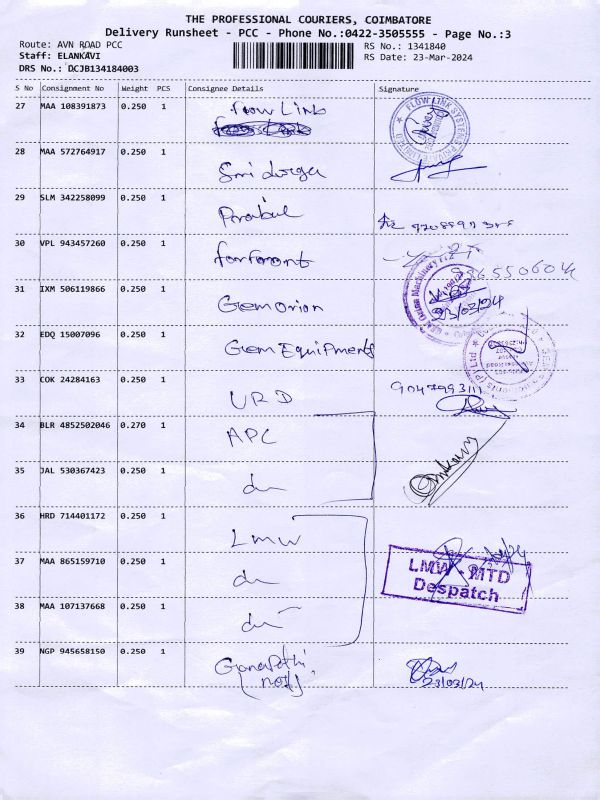 THE PROFESSIONAL COURIERS, COIMBATORE
Delivery Runsheet - PCC - Phone No.:0422-3505555 - Page No.:3
Route: AVN ROAD PCC
Staff: ELANKAVI
DRS No.: DCJB134184003
RS No.: 1341840
RS Date: 23-Mar-2024
S No Consignment No Weight PCS Consignee Details Signature
27 MAA 108391873 0.250 1 Flow Link
28 MAA 572764917 0.250 1 Smi durga
29 SLM 342258099 0.250 1
30 VPL 943457260 0.250 1
31 IXM 506119866 0.250 1 Gem Orion
23/03/24
32 EDQ 15007096 0.250 1 Gem Equipments
33 COK 24284163 0.250 1 URD 9047993111
34 BLR 4852502046 0.270 1 APC
35 JAL 530367423 0.250 1 du
36 HRD 714401172 0.250 1 Lmw
37 MAA 865159710 0.250 1 du
LMW - MTD
Despatch
38 MAA 107137668 0.250 1 du
39 NGP 945658150 0.250 1 Ganapathi
23/03/24